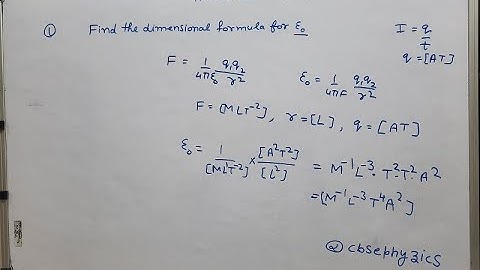 ① Find the dimensional formula for ε₀
I = q/t
q = [AT]
F = 1/4πε₀ q₁q₂/r²
ε₀ = 1/4πF q₁q₂/r²
F = [MLT⁻²], r = [L], q = [AT]
ε₀ = 1/[ML¹T⁻²] × [A²T²]/[L²] = M⁻¹L⁻³·T²T²A²
= [M⁻¹L⁻³T⁴A²]
@cbsephyzics